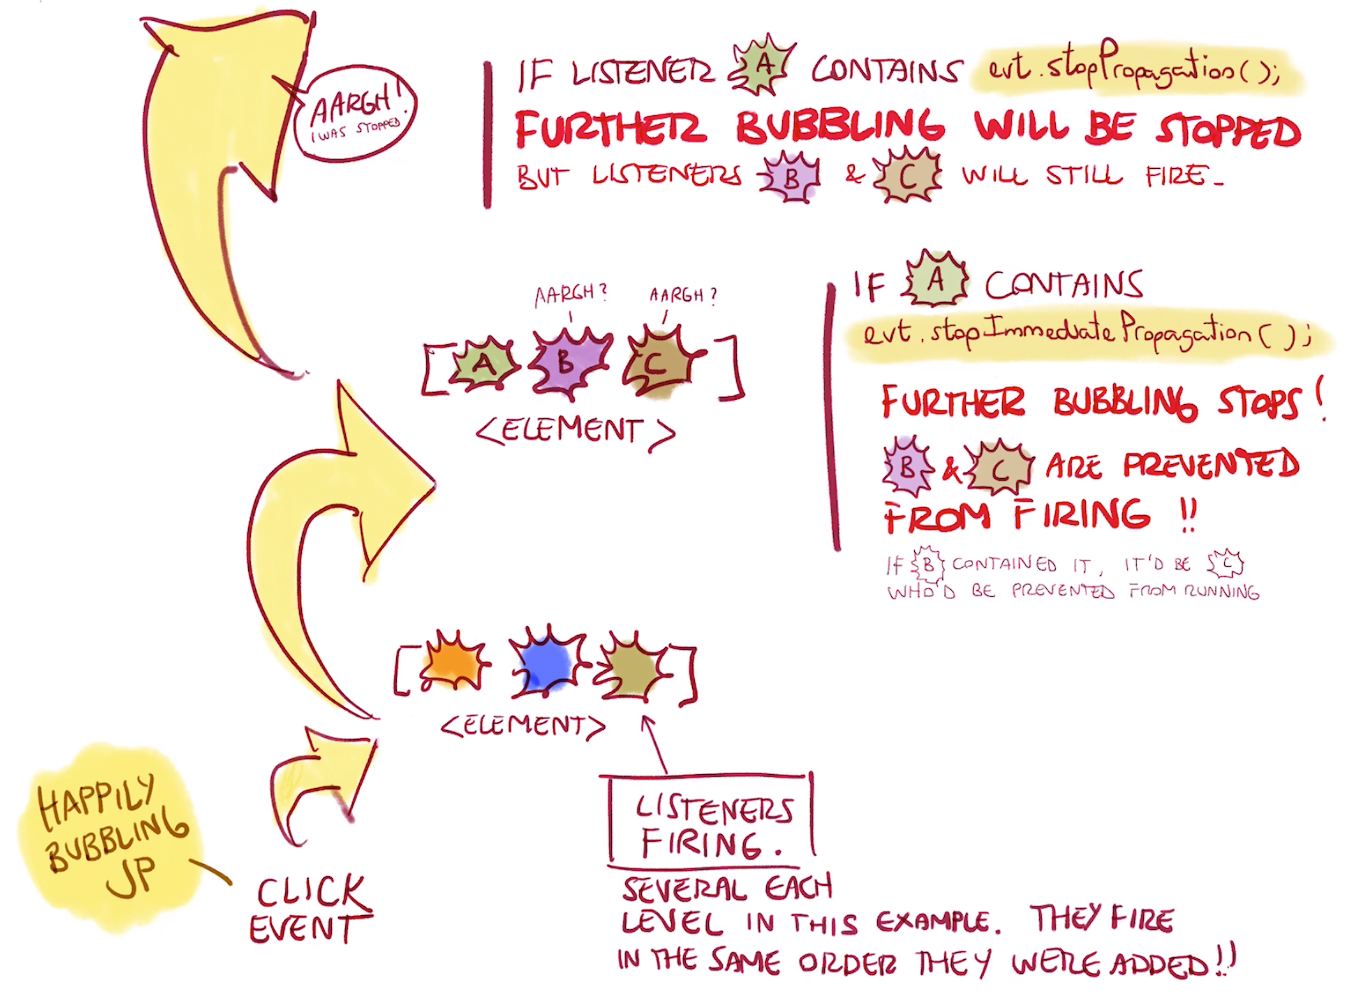 AARGH!
I WAS STOPPED.
IF LISTENER A CONTAINS evt.stopPropagation();
FURTHER BUBBLING WILL BE STOPPED
BUT LISTENERS B & C WILL STILL FIRE_
IF A CONTAINS
evt.stopImmediatePropagation();
FURTHER BUBBLING STOPS!
B & C ARE PREVENTED
FROM FIRING !!
IF B CONTAINED IT, IT'D BE C
WHO'D BE PREVENTED FROM RUNNING
AARGH? AARGH?
[A B C]
<ELEMENT>
[ ]
<ELEMENT>
LISTENERS
FIRING.
SEVERAL EACH
LEVEL IN THIS EXAMPLE. THEY FIRE
IN THE SAME ORDER THEY WERE ADDED!!
HAPPILY
BUBBLING
UP
CLICK
EVENT